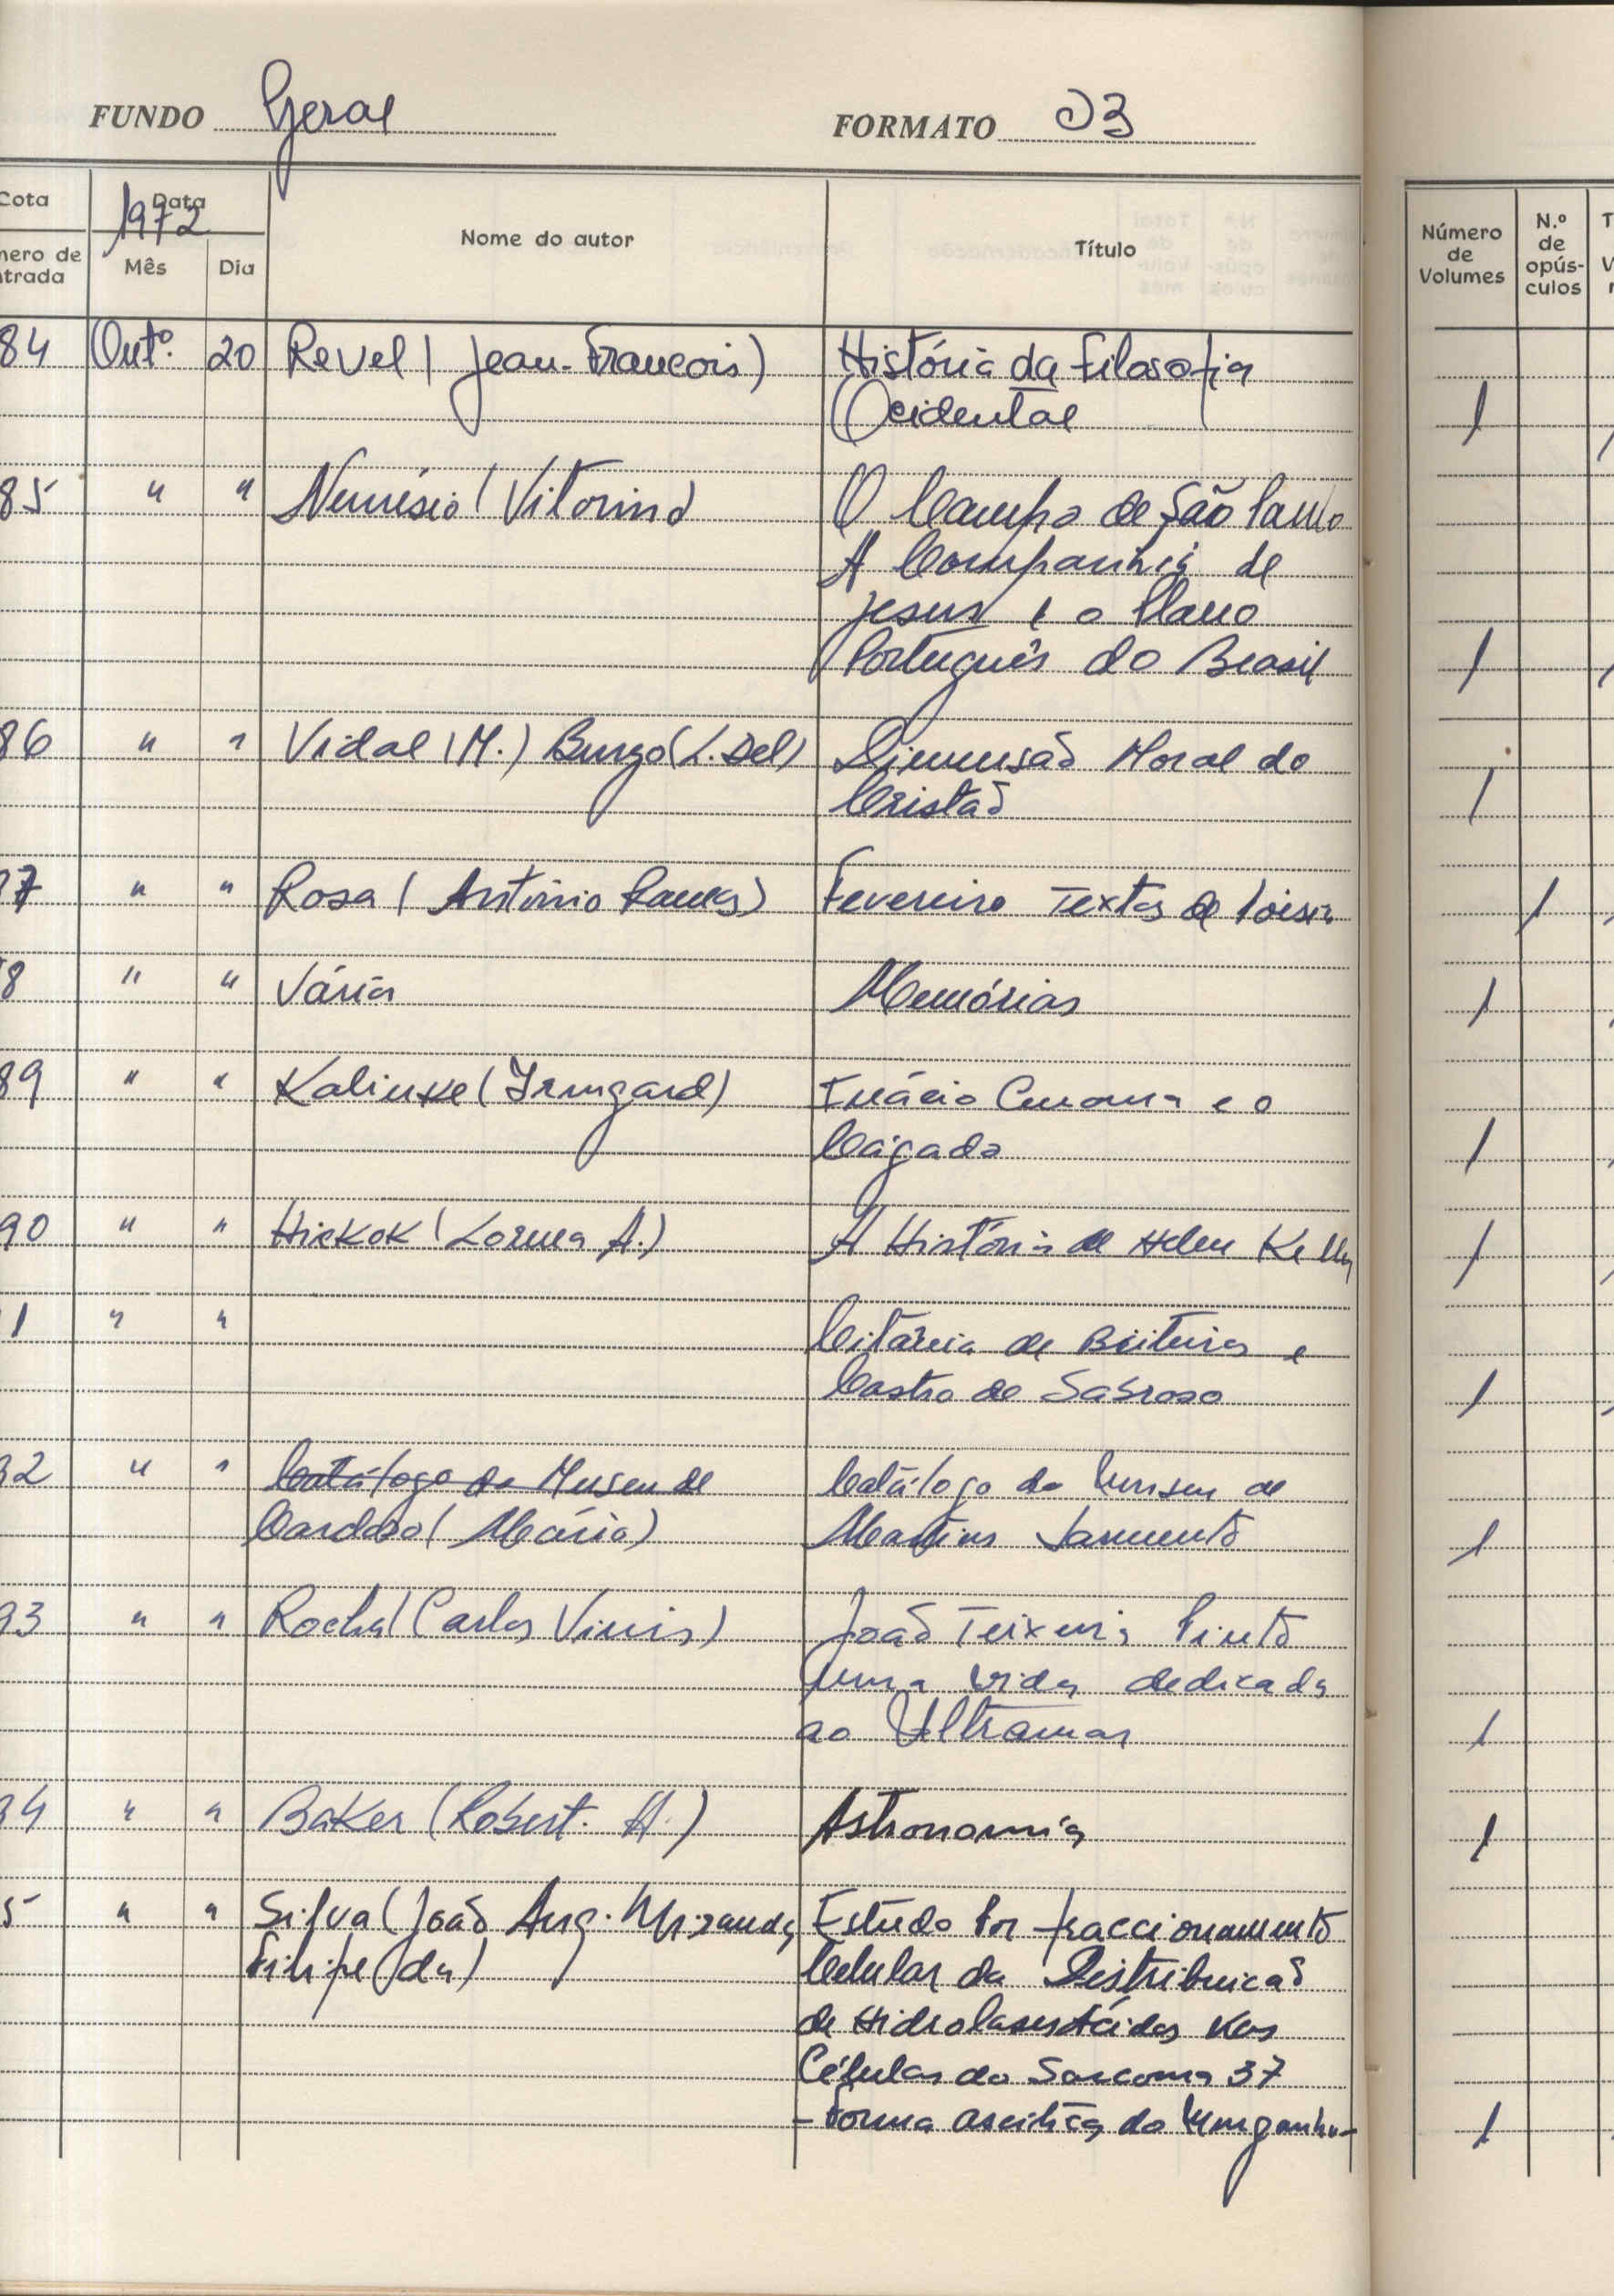 FUNDO Geral FORMATO D3
Cota Data 1972 Nome do autor Título Número de Volumes N.º de opús-culos
mero de ntrada Mês Dia
84 Outº. 20 Revel (Jean-François) História da Filosofia
Ocidental 1
85 " " Nemésio (Vitorino) O Campo de São Paulo
A Companhia de
Jesus e o Plano
Português do Brasil 1
86 " " Vidal (M.) Burgo (L. Del) Dimensão Moral do
Cristão 1
87 " " Rosa (António Ramos) Fevereiro Textos de Poesia 1
8 " " Vária Memórias 1
89 " " Kalinke (Irmgard) Inácio e o
Cágado 1
90 " " Hickok (Lorena A.) A História de Helen Kelly 1
1 " " Citânia de Briteiros e
Castro de Sabroso 1
92 " " Catálogo do Museu de Catálogo do Museu de
Cardozo (Mário) Martins Sarmento 1
93 " " Rocha (Carlos Vieira) João Teixeira Pinto
uma vida dedicada
ao Ultramar 1
94 " " Baker (Robert. H.) Astronomia 1
5 " " Silva (João Aug. Miranda Estudo Por fraccionamento
Filipe (da) Celular da Distribuição
de Hidrolases Ácidas Nas
Células do Sarcoma 37
- Forma ascítica do Murganho - 1